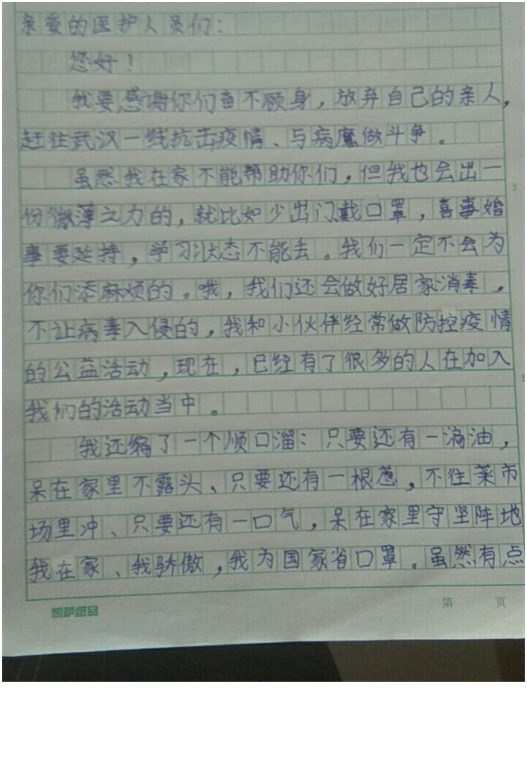 亲爱的医护人员们：
您好！
我要感谢你们奋不顾身，放弃自己的亲人，
赶往武汉一线抗击疫情、与病魔做斗争。
虽然我在家不能帮助你们，但我也会出一
份微薄之力的，就比如少出门戴口罩，喜事婚
事要延持，学习状态不能丢。我们一定不会为
你们添麻烦的。哦，我们还会做好居家消毒，
不让病毒入侵的，我和小伙伴经常做防控疫情
的公益活动，现在，已经有了很多的人在加入
我们的活动当中。
我还编了一个顺口溜：只要还有一滴油，
呆在家里不露头、只要还有一根葱，不往菜市
场里冲、只要还有一口气，呆在家里守坚阵地
我在家、我骄傲，我为国家省口罩。虽然有点
第 页